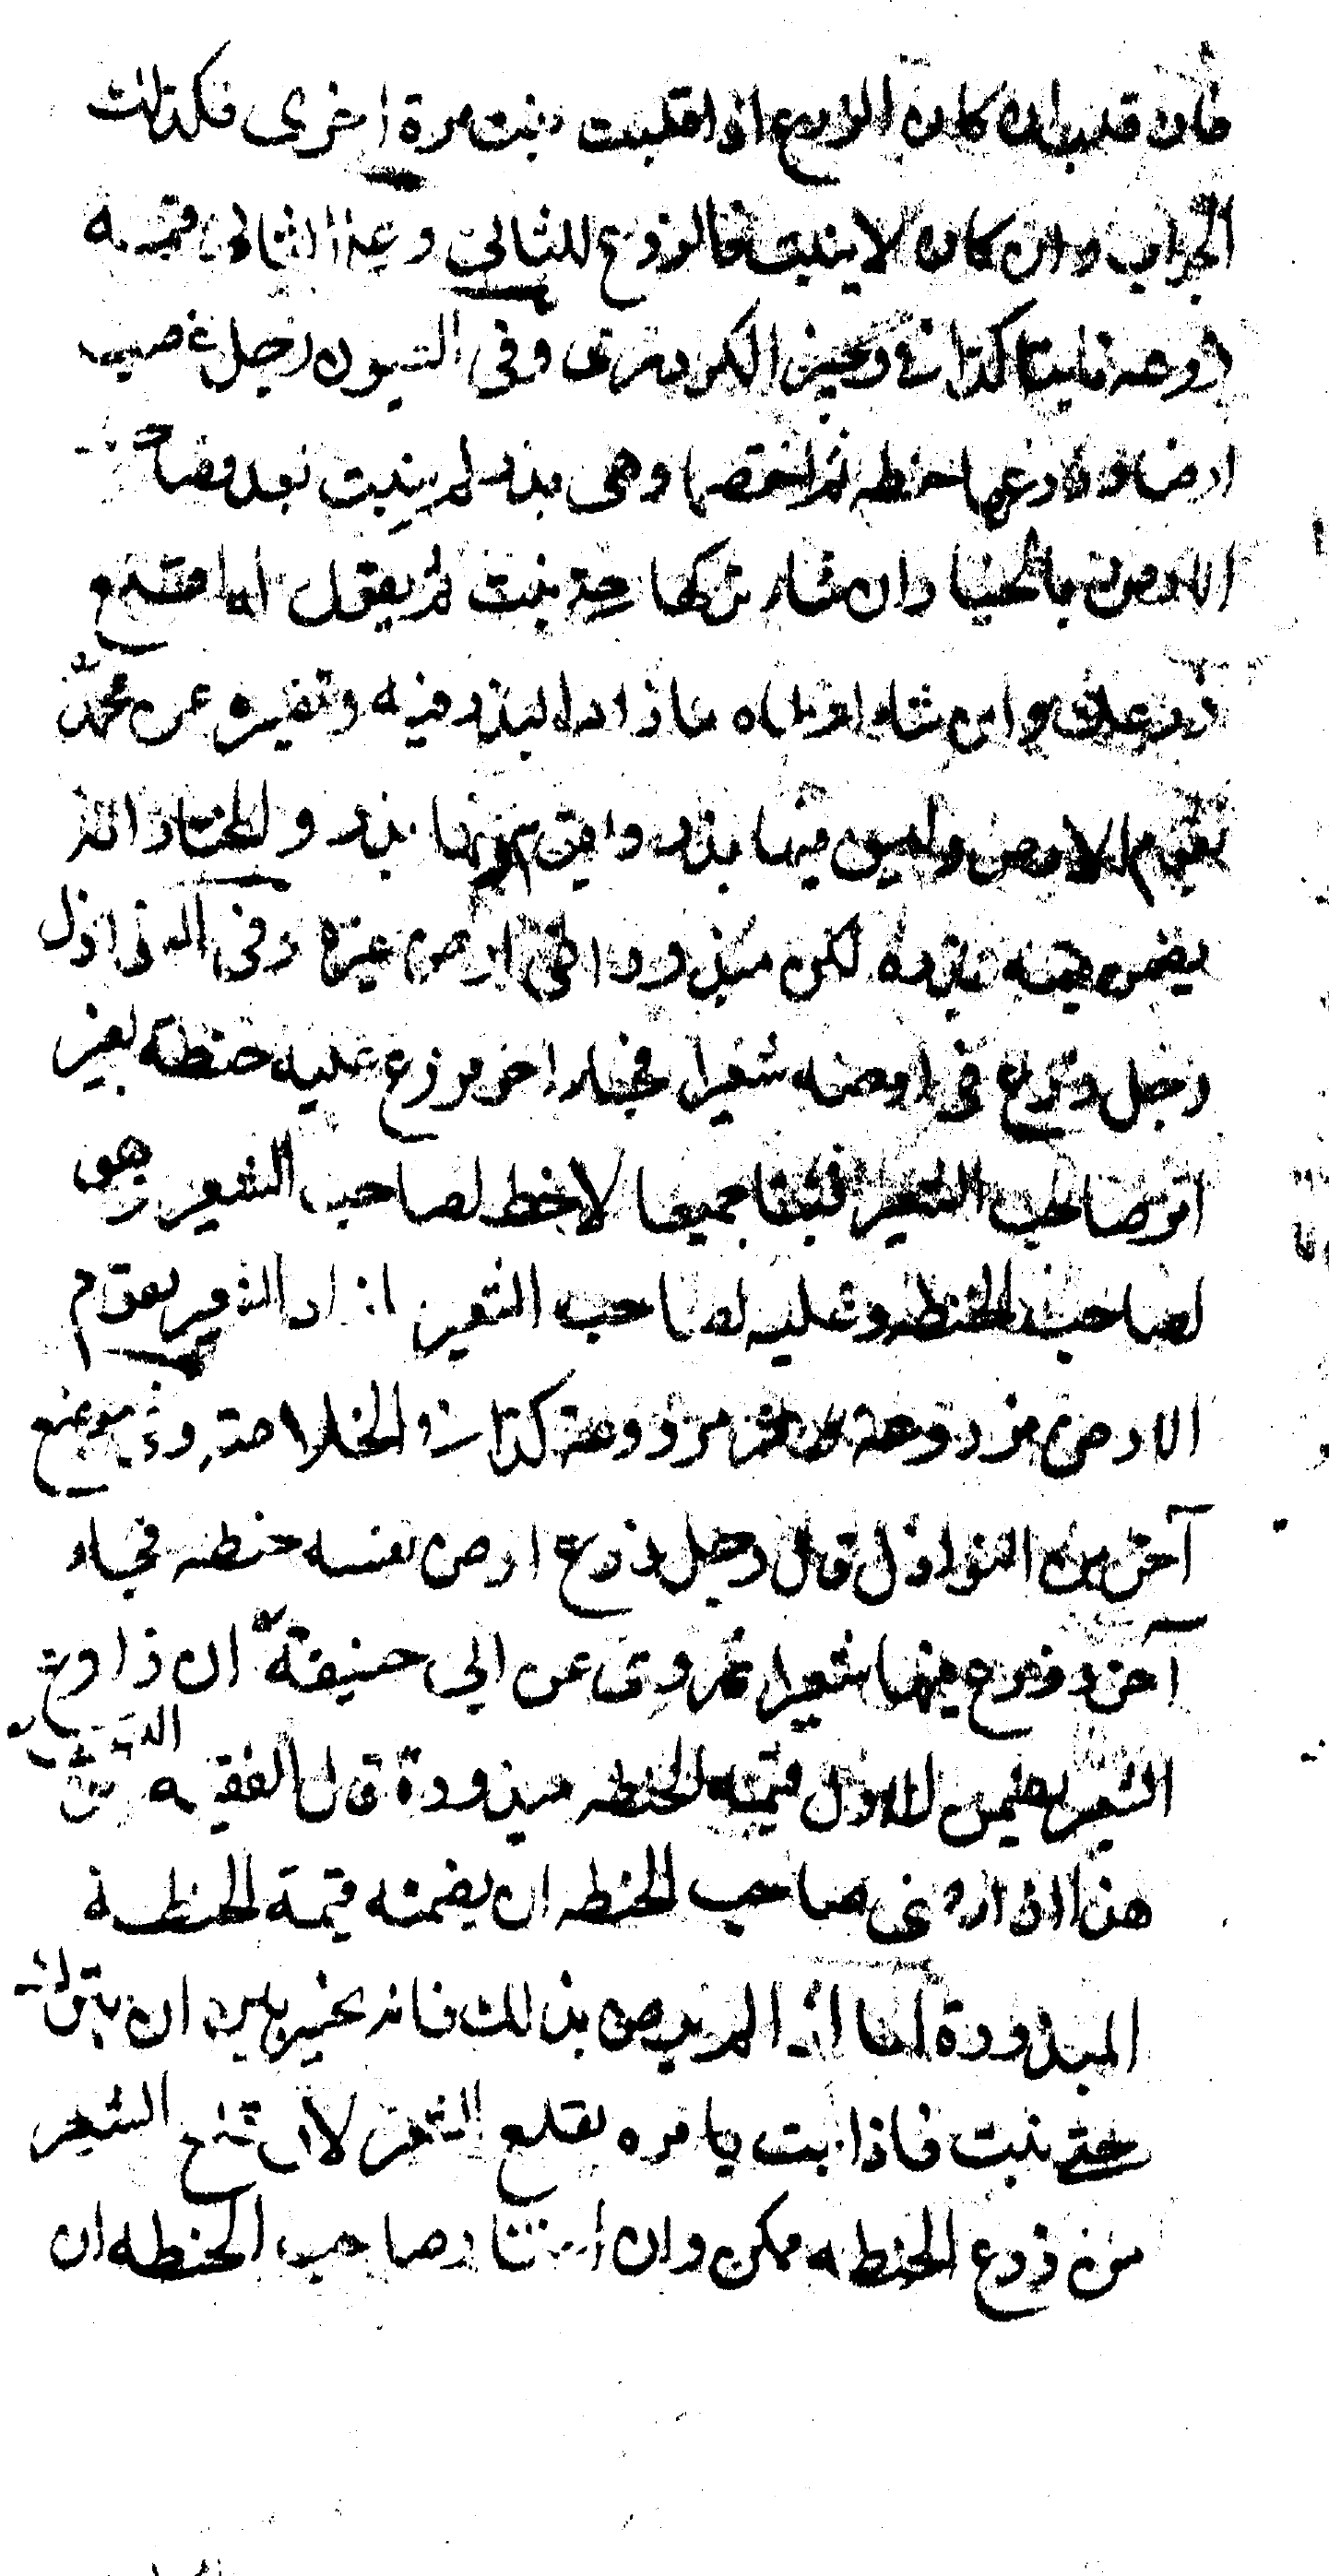 فان قلب ان كان الزرع اذا قلبت نبت مرة اخرى فكذلك
الجواب وان كان لا ينبت فالزرع للثاني وعلى الثاني قيمته
مزروعة نابتا كذا في وجيز الكردري وفي العيون رجل غصب
ارضا وزرعها حنطة ثم اختصما وهي بذر لم ينبت بعد فصاحب
الارض بالخيار ان شاء تركها حتى نبت ثم يقول له اقلع
زرعك وان شاء اعطاه ما زاد البذر فيه وتفسيره عن محمد
تقوم الارض وليس فيها بذر وتقوم وفيها بذر والمختار انه
يضمن قيمة بذره لكن مبذورا في ارض غيره وفي النوازل
رجل زرع في ارضه شعيرا فجاء اخر وزرع عليه حنطة بغير
امر صاحب الشعير فنبتا جميعا لا حظ لصاحب الشعير وهو
لصاحب الحنطة وعليه لصاحب الشعير ما زاد الشعير يقوم
الارض مزروعة وغير مزروعة كذا في الخلاصة وفي موضع
آخر من النوازل قال رجل زرع ارض نفسه حنطة فجاء
آخر وزرع فيها شعيرا فروى عن ابي حنيفة ان زارع
الشعير يضمن للاول قيمة الحنطة مبذورة قال الفقيه ابو الليث
هذا اذا رضي صاحب الحنطة ان يضمنه قيمة الحنطة
المبذورة اما اذا لم يرض بذلك فانه يخير بين ان يترك
حتى ينبت فاذا نبت يامره بقلع الشعير لان قلع الشعير
من زرع الحنطة ممكن وان اختار صاحب الحنطة ان